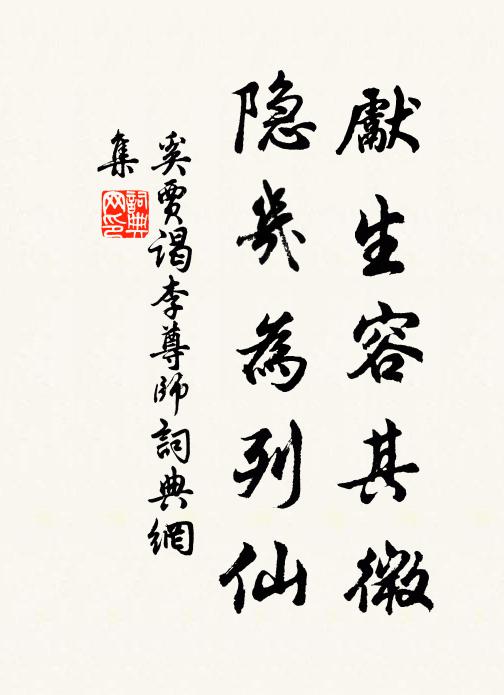 獻生容其微
隐幾為列仙
奚賈謁李尊師詞典網
集
詞典
网印